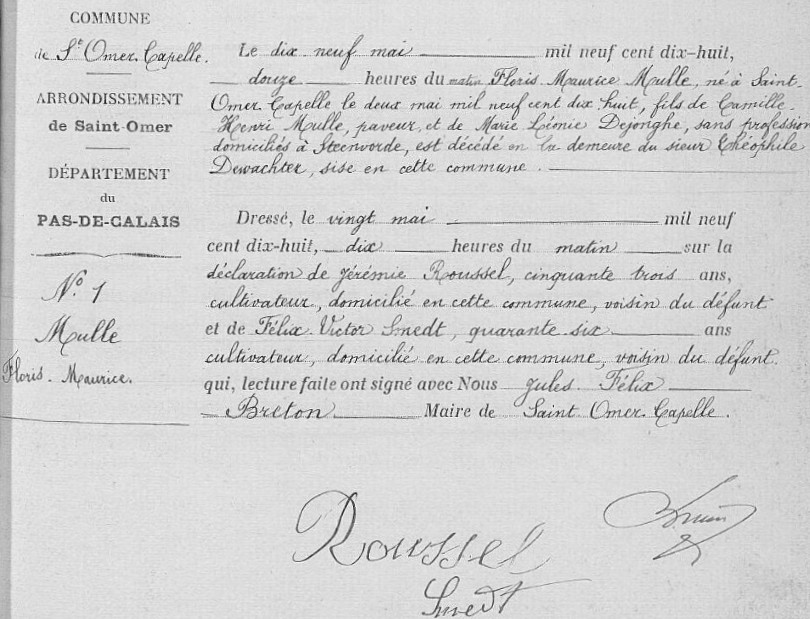 COMMUNE
de St Omer Capelle.
ARRONDISSEMENT
de Saint-Omer
DÉPARTEMENT
du
PAS-DE-CALAIS
No 1
Mulle
Floris - Maurice.
Le dix neuf mai mil neuf cent dix-huit,
douze heures du matin Floris Maurice Mulle, né à Saint-
Omer Capelle le deux mai mil neuf cent dix huit, fils de Camille
Henri Mulle, paveur, et de Marie Léonie Dejonghe, sans profession
domiciliés à Steenworde, est décédé en la demeure du sieur Théophile
Dewachter, sise en cette commune.
Dressé, le vingt mai mil neuf
cent dix-huit, dix heures du matin sur la
déclaration de Jérémie Roussel, cinquante trois ans,
cultivateur, domicilié en cette commune, voisin du défunt
et de Félix Victor Smedt, quarante-six ans
cultivateur, domicilié en cette commune, voisin du défunt.
qui, lecture faite ont signé avec Nous Jules Félix
Breton Maire de Saint Omer Capelle.
Roussel
Smedt